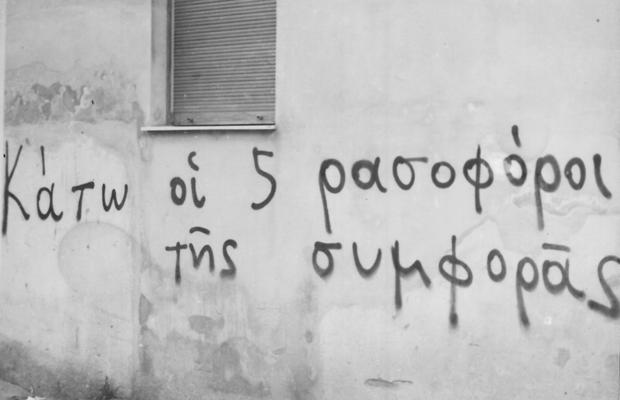 Κάτω οἱ 5 ρασοφόροι
τῆς συμφορᾶς